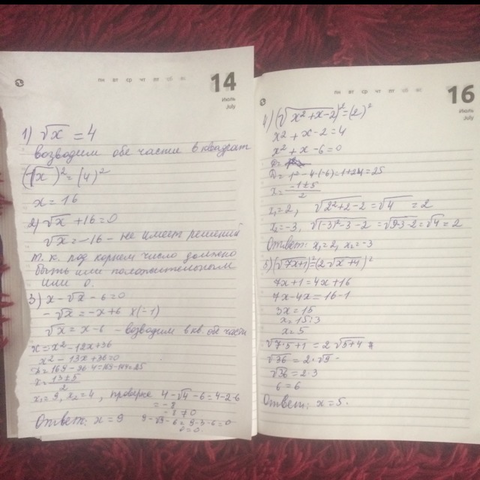 14
июль
July
1) √x = 4
возводим обе части в квадрат
(√x)² = (4)²
x = 16
2) √x + 16 = 0
√x = -16 - не имеет решений
т. к. под корнем число должно
быть или положительным
или 0.
3) x - √x - 6 = 0
-√x = -x + 6 × (-1)
√x = x - 6 - возводим в кв. обе части
x = x² - 12x + 36
x² - 13x + 36 = 0
x = 13±5/2
x₁ = 9, x₂ = 4, проверка 4 - √4 - 6 = 4-2-6
= -4
-4 ≠ 0
Ответ: x = 9 9 - √9 - 6 = 9-3-6=0
0=0
16
июль
July
4) (√x² + x - 2)² = (2)²
x² + x - 2 = 4
x² + x - 6 = 0
D = 1² - 4·(-6) = 1+24 = 25
x = -1±5/2
x₁ = 2, √2²+2-2 = √4 = 2
x₂ = -3, √(-3)²-3-2 = √9-3-2 = √4 = 2
Ответ: x₁ = 2, x₂ = -3
5) (√7x+1)² = (2√x+4)²
7x + 1 = 4x + 16
7x - 4x = 16 - 1
3x = 15
x = 15:3
x = 5
√7·5+1 = 2√5+4
√36 = 2·√9
√36 = 2·3
6 = 6
Ответ: x = 5.